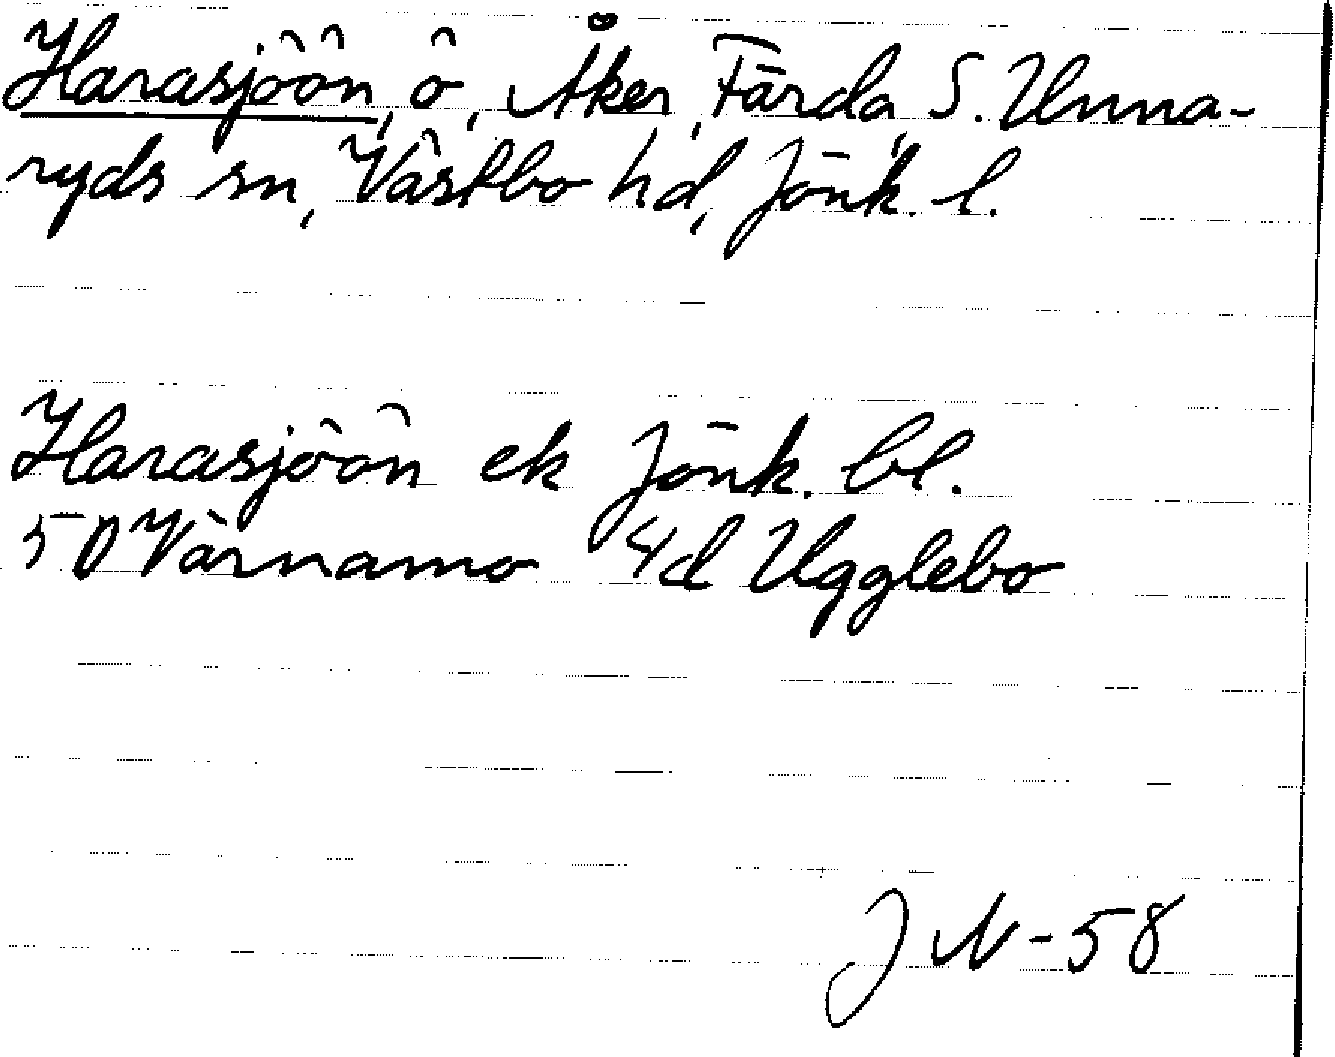 Harasjöön, ö, Åker, Färda, S. Unna-
ryds sn, Västbo hd, Jönk. l.
Harasjöön ek Jönk. bl.
5D Värnamo 4d Ugglebo
JN-58